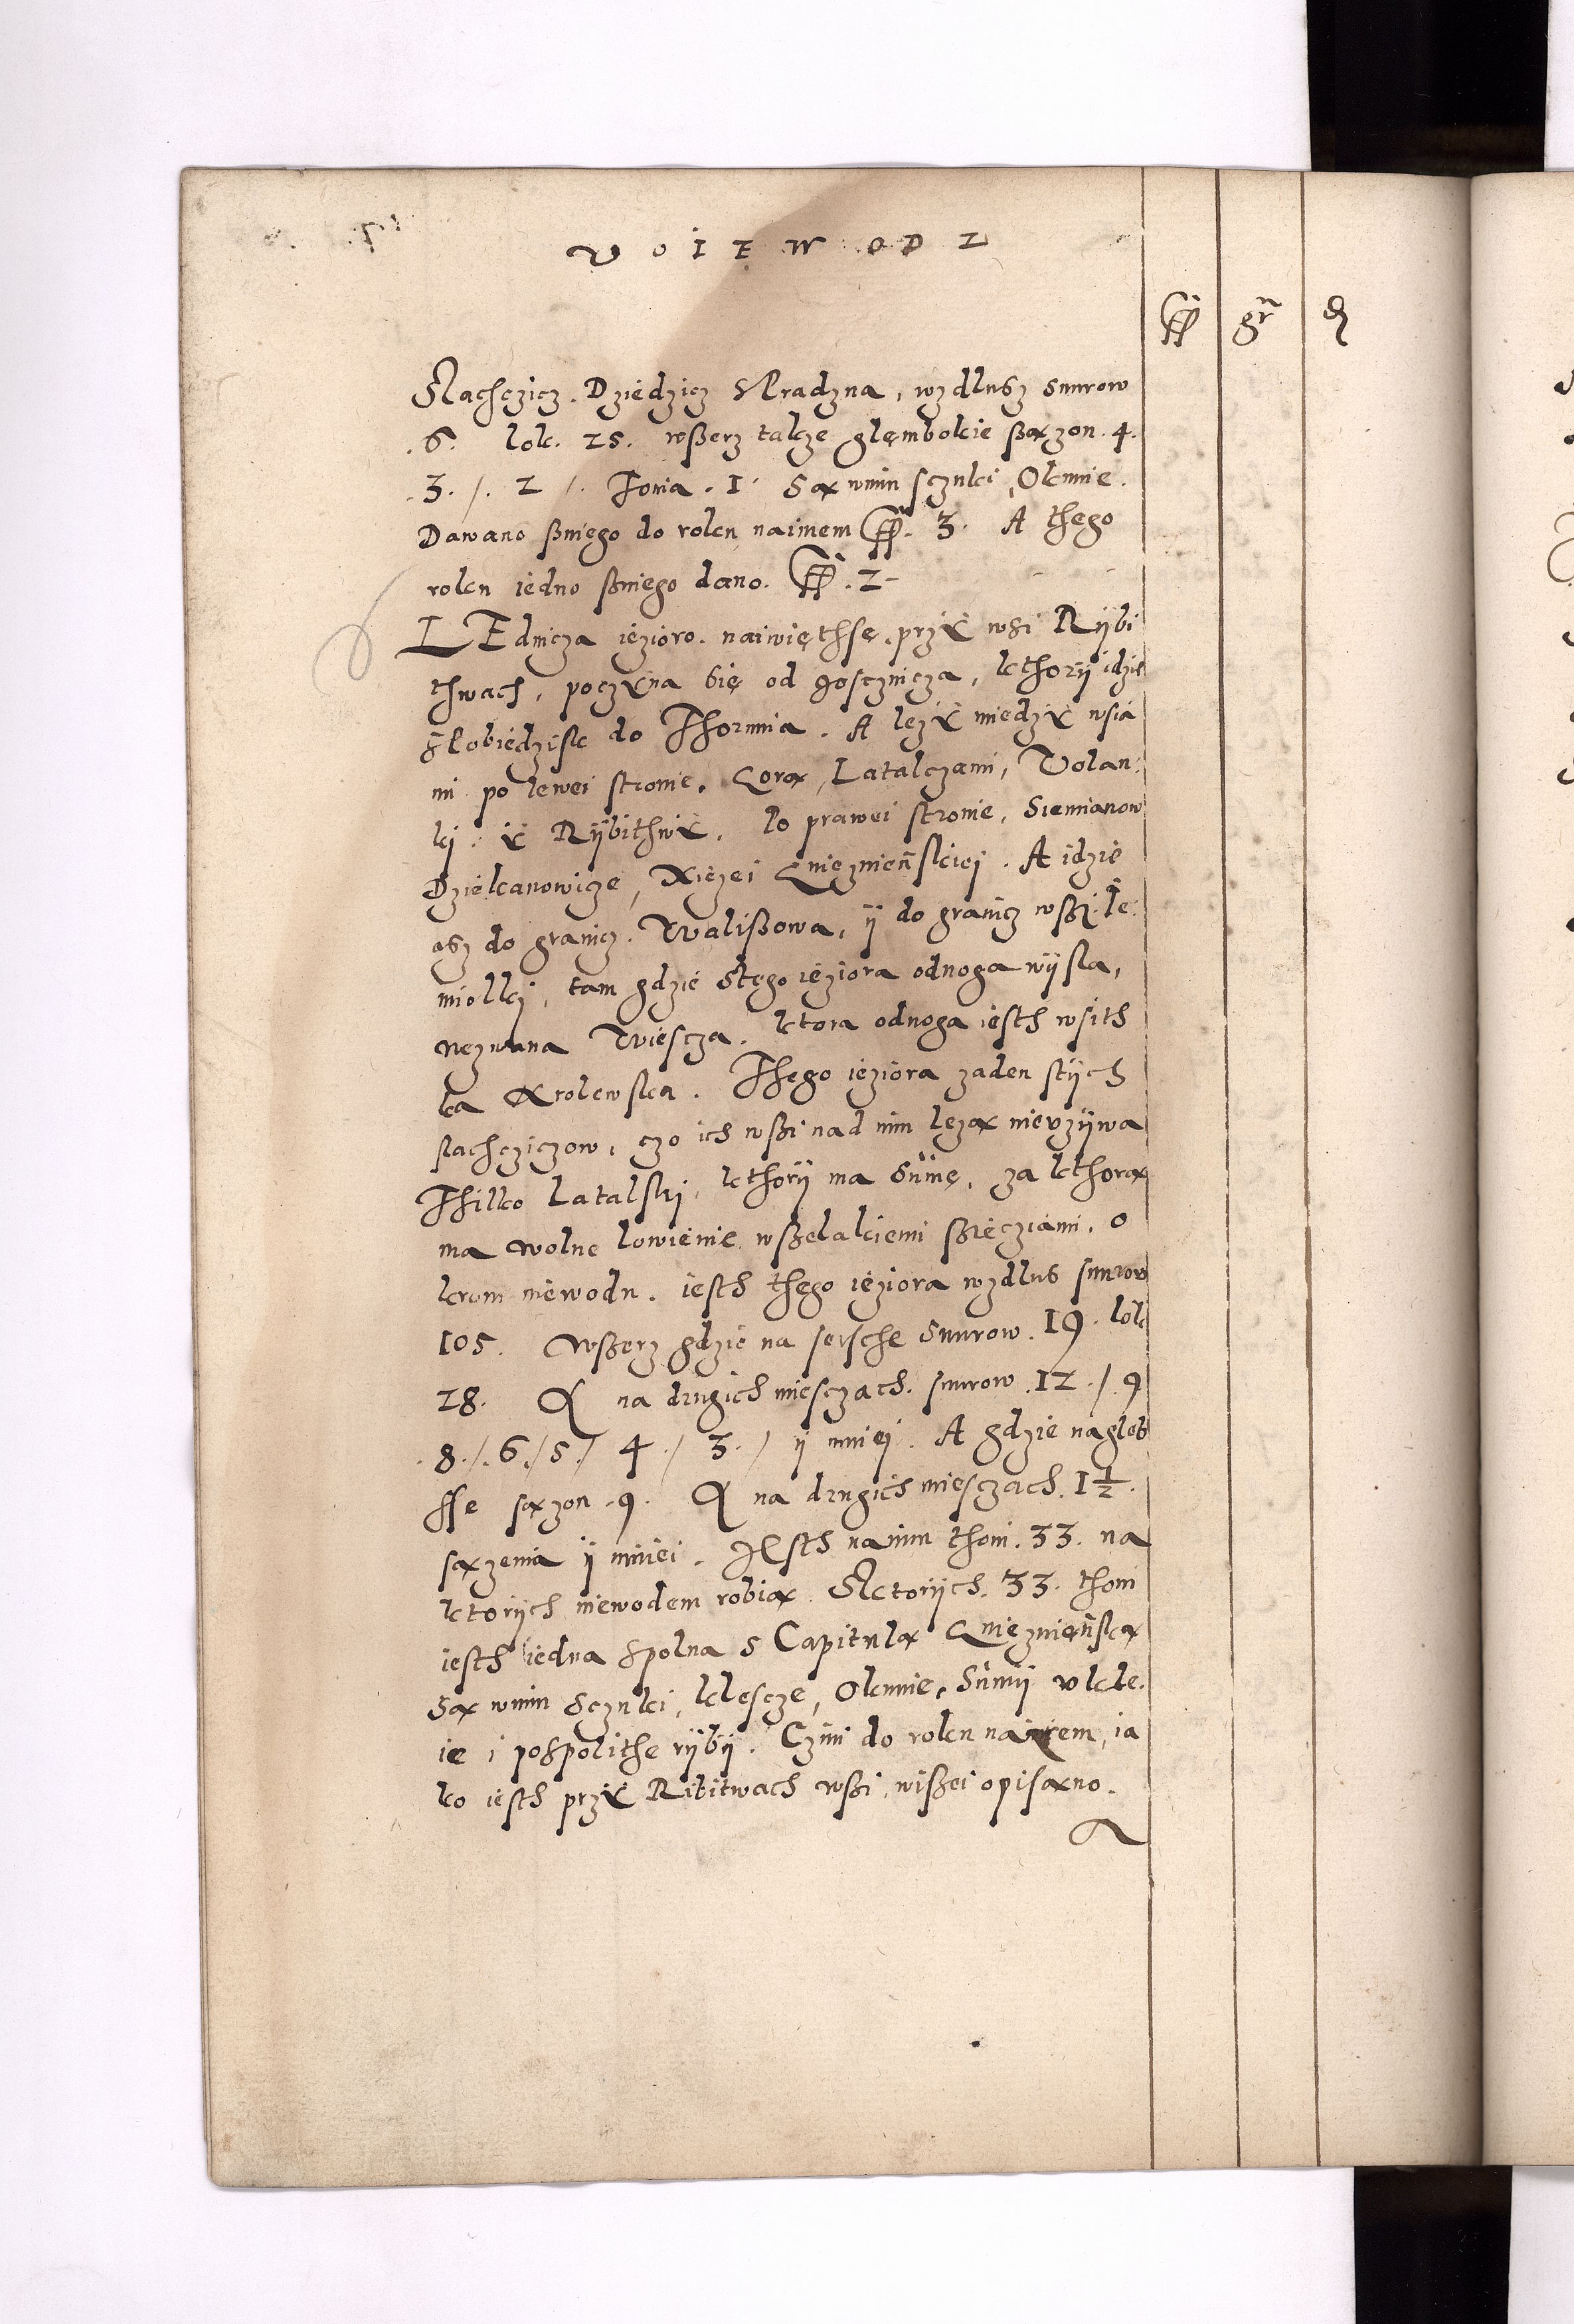 VOIEWODZ
ff gr d
Slachczicz. Dziedzicz Kradzna, wzdlusz snurow
.6. lok. 25. wszerz takze glęmbokie sząrzon. 4.
.3. /. 2 /. Tonia . 1. Są wnim sczuki, Okunie.
Dawano sniego do roku naimem ff. 3. A thego
roku iedno sniego dano. ff. 2-
LEdnicza iezioro. naiwięthse. przÿ wsi Rÿbi
thwach, poczÿna się od gosczincza, kthorÿ idzie
s Pobiedzisk do Thorunia. A lezÿ miedzÿ wsia
mi po lewei stronie. Gorą, Latalczami, Volan:
ki: ÿ Rÿbithwÿ. Po prawei stronie, Siemianow
Dziekanowicze, Xięzei Gnieznieńskiei. A idzie
asz do granicz. Waliszowa, ÿ do granicz wszi. Le:
miolki, tam gdzie stego ieziora odnoga wÿsla,
nazwana Wiescza. ktora odnoga iesth wsith
ka Krolewska. Thego ieziora zaden stÿch
slachcziczow, czo ich wszi nad nim lezą nievzÿwa
Thilko Latalski, kthorÿ ma Sumę, za kthorą
ma wolne lowienie wszelakiemi sziecziami, o
krom niewodu. iesth thego ieziora wzdlus snurow
105. Wszerz gdzie na sersche Snurow. 19. lok
28. A na drugich miesczach. snurow .12 . / . 9
.8. /. 6. / 5. / 4. / 3. / ÿ mniei. A gdzie nagleb
sse sązon . 9. A na drugich miesczach. 1 1/2.
sązenia ÿ mniei. IEsth nanim thoni. 33. na
ktorÿch niewodem robią. Sktorÿch. 33. thoni
iesth iedna spolna s Capitulą Gnieznieńską
Są wnim Sczuki, klescze, Okunie, Sumÿ vkle.
ie i pospolithe rÿbÿ. Czini do roku naiem, ia
ko iesth przÿ Ribitwach wszi, wiszei opisąno.